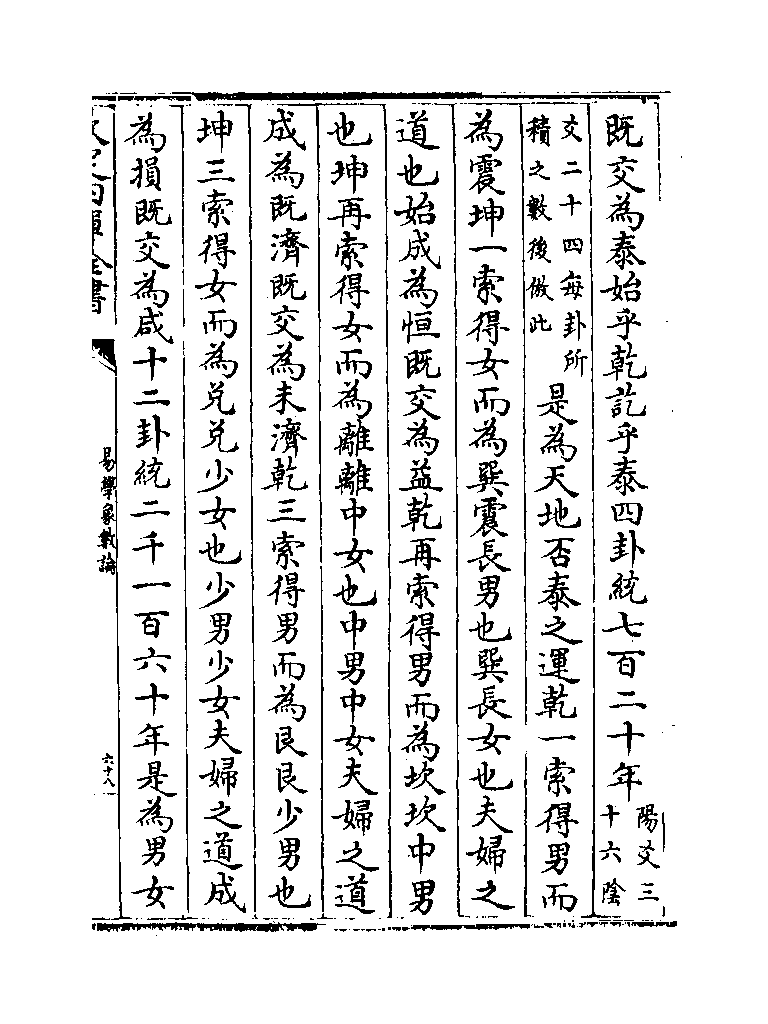 既交為泰始乎乾訖乎泰四卦統七百二十年陽爻三十六陰
爻二十四每卦所積之數後倣此是為天地否泰之運乾一索得男而
為震坤一索得女而為巽震長男也巽長女也夫婦之
道也始成為恒既交為益乾再索得男而為坎坎中男
也坤再索得女而為離離中女也中男中女夫婦之道
成為既濟既交為未濟乾三索得男而為艮艮少男也
坤三索得女而為兌兌少女也少男少女夫婦之道成
為損既交為咸十二卦統二千一百六十年是為男女
欽定四庫全書
易學象數論
六十八